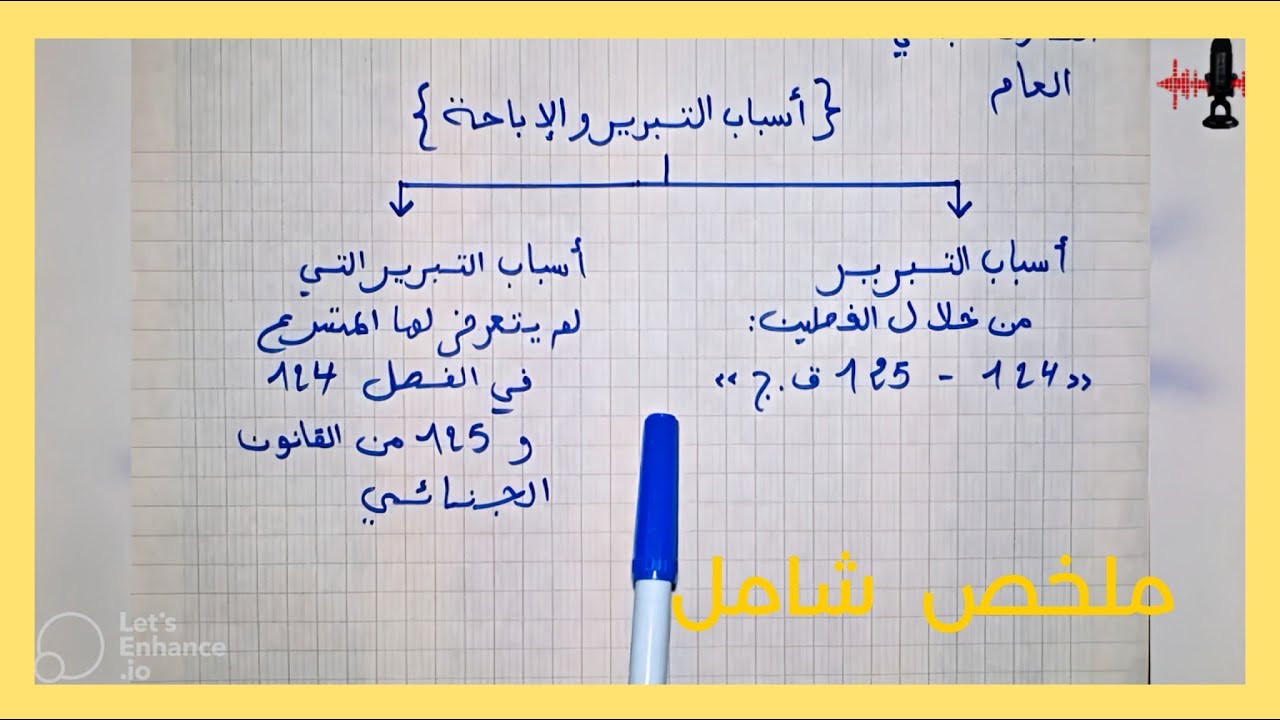 العام
{أسباب التبرير والإباحة}
أسباب التبرير
من خلال الفصلين:
«124 - 125 ق.ج»
أسباب التبرير التي
لم يتعرض لها المشرع
في الفصل 124
و 125 من القانون
الجنائي
ملخص شامل
Let's
Enhance
.io